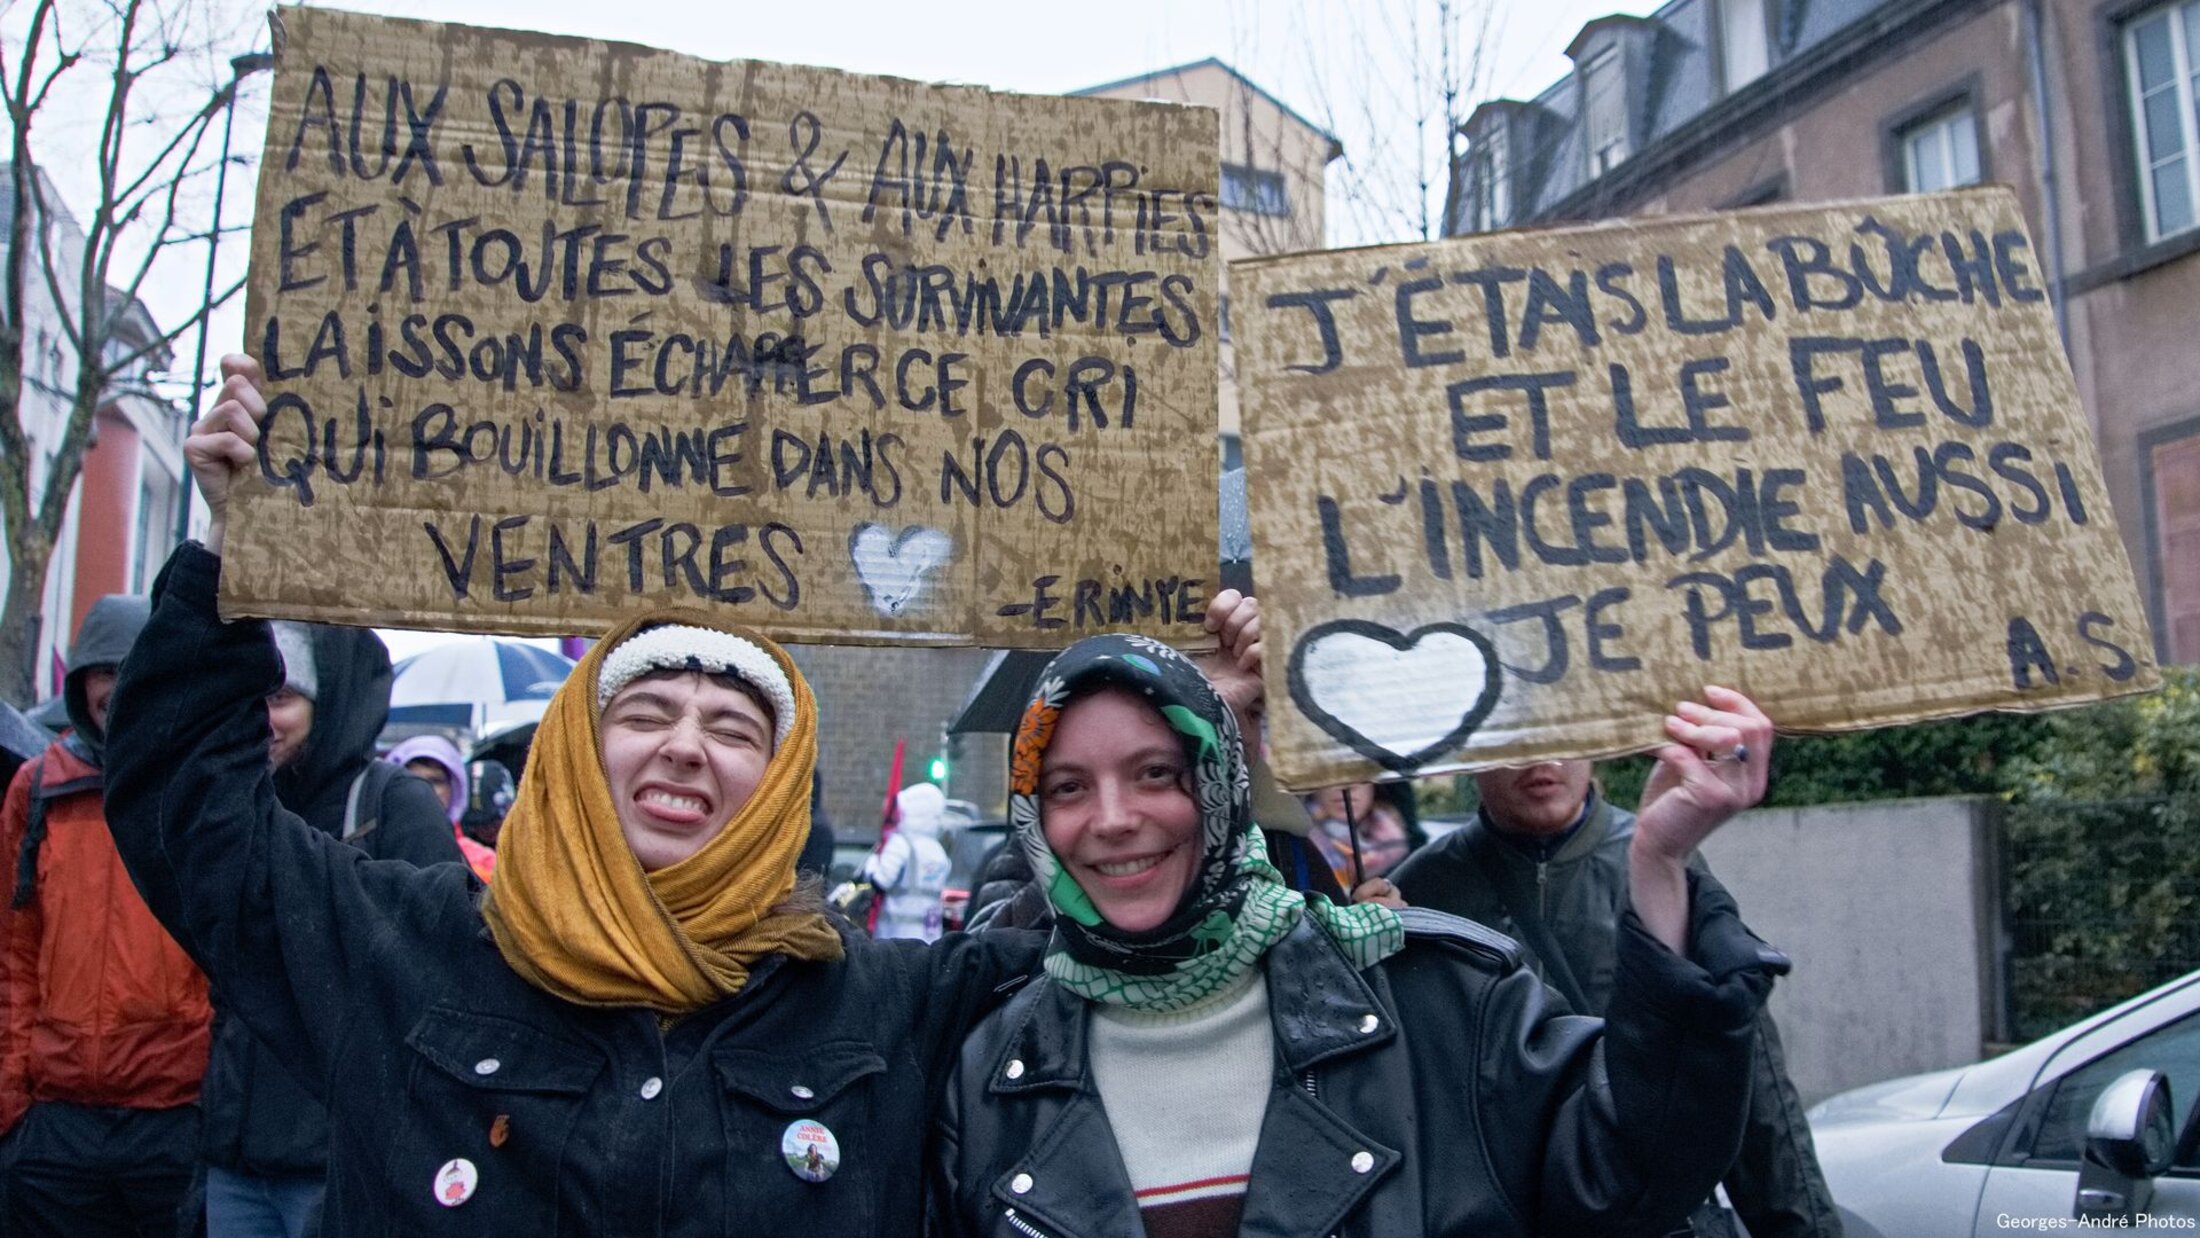 AUX SALOPES & AUX HARPIES
ET À TOUTES LES SURVIVANTES
LAISSONS ÉCHAPPER CE CRI
QUI BOUILLONNE DANS NOS
VENTRES
-ERINYE
J'ÉTAIS LA BÛCHE
ET LE FEU
L'INCENDIE AUSSI
JE PEUX
A.S.
ANNIE
COLÈRE
Georges-André Photos